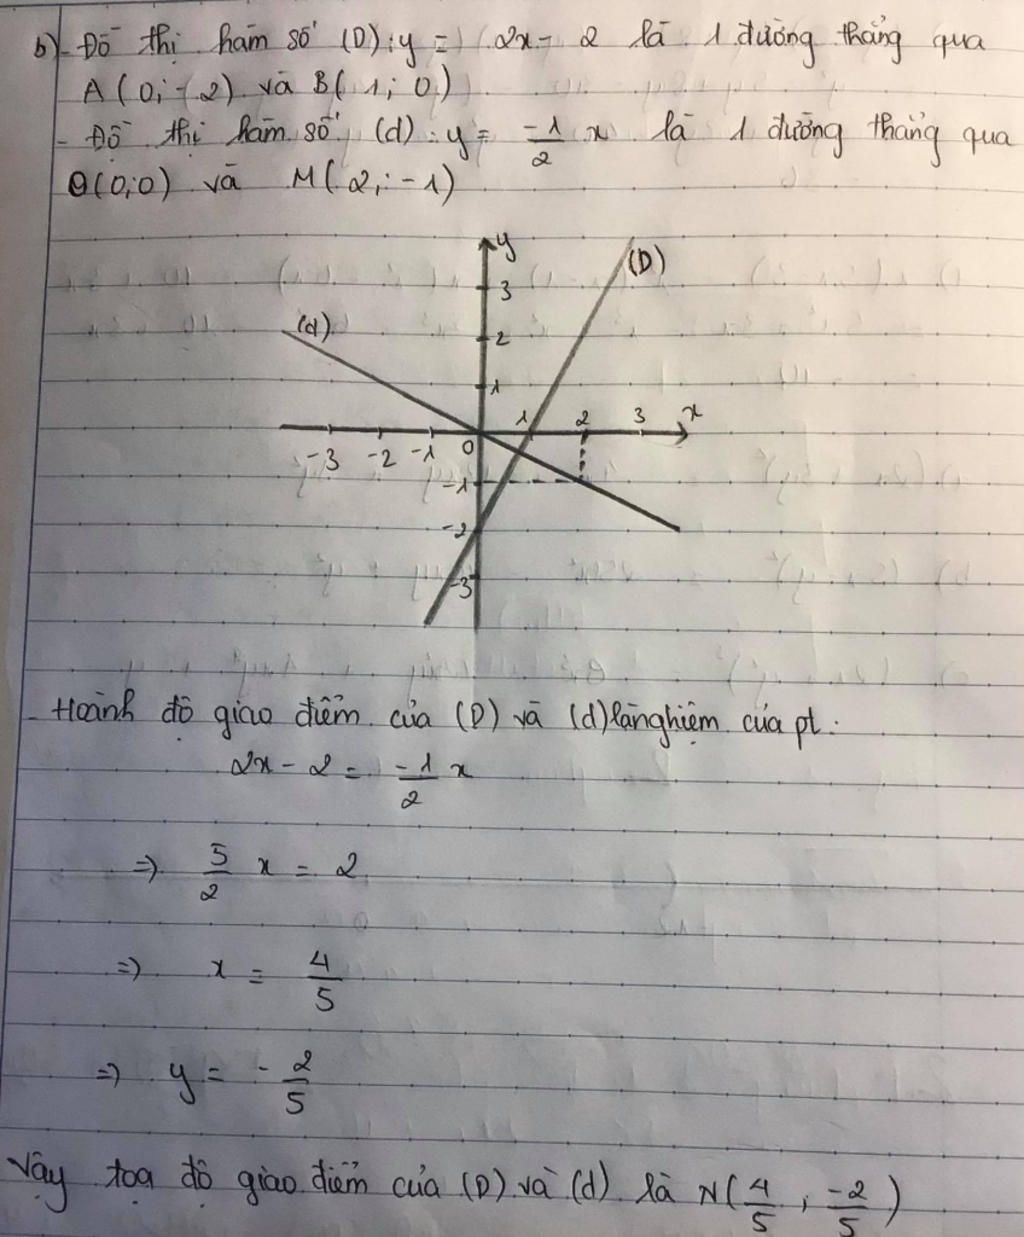 b) - Đồ thị hàm số (D): y = 2x - 2 là 1 đường thẳng qua
A(0; -2) và B(1; 0)
- Đồ thị hàm số (d): y = -1/2 x là 1 đường thẳng qua
O(0;0) và M(2; -1)
y
(D)
3
(d)
2
1
1 2 3 x
-3 -2 -1 0
-1
-2
-3
- Hoành độ giao điểm của (D) và (d) là nghiệm của pt:
2x - 2 = -1/2 x
=> 5/2 x = 2
=> x = 4/5
=> y = -2/5
Vậy tọa độ giao điểm của (D) và (d) là N(4/5; -2/5)